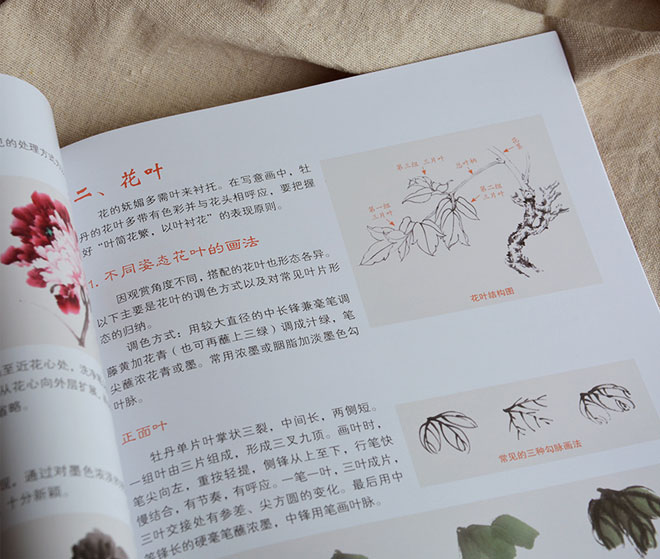 见的处理方式
至近花心处,洗净
从花心向外层扩展
省略。
通过对墨色浓淡
十分新颖。
二、花叶
花的妩媚多需叶来衬托。在写意画中,牡
丹的花叶多带有色彩并与花头相呼应,要把握
好“叶简花繁,以叶衬花”的表现原则。
1. 不同姿态花叶的画法
因观赏角度不同,搭配的花叶也形态各异。
以下主要是花叶的调色方式以及对常见叶片形
态的归纳。
调色方式:用较大直径的中长锋兼毫笔调
藤黄加花青(也可再蘸上三绿)调成汁绿,笔
尖蘸浓花青或墨。常用浓墨或胭脂加淡墨色勾
叶脉。
正面叶
牡丹单片叶掌状三裂,中间长,两侧短。
一组叶由三片组成,形成三叉九顶。画叶时,
笔尖向左,重按轻提,侧锋从上至下,行笔快
慢结合,有节奏,有呼应。一笔一叶,三叶成片,
三叶交接处有参差、尖方圆的变化。最后用中
笔锋长的硬毫笔蘸浓墨,中锋用笔画叶脉。
第三组 三月叶
总叶柄
花茎
第一组
三月叶
第二组
三月叶
花叶结构图
常见的三种勾脉画法